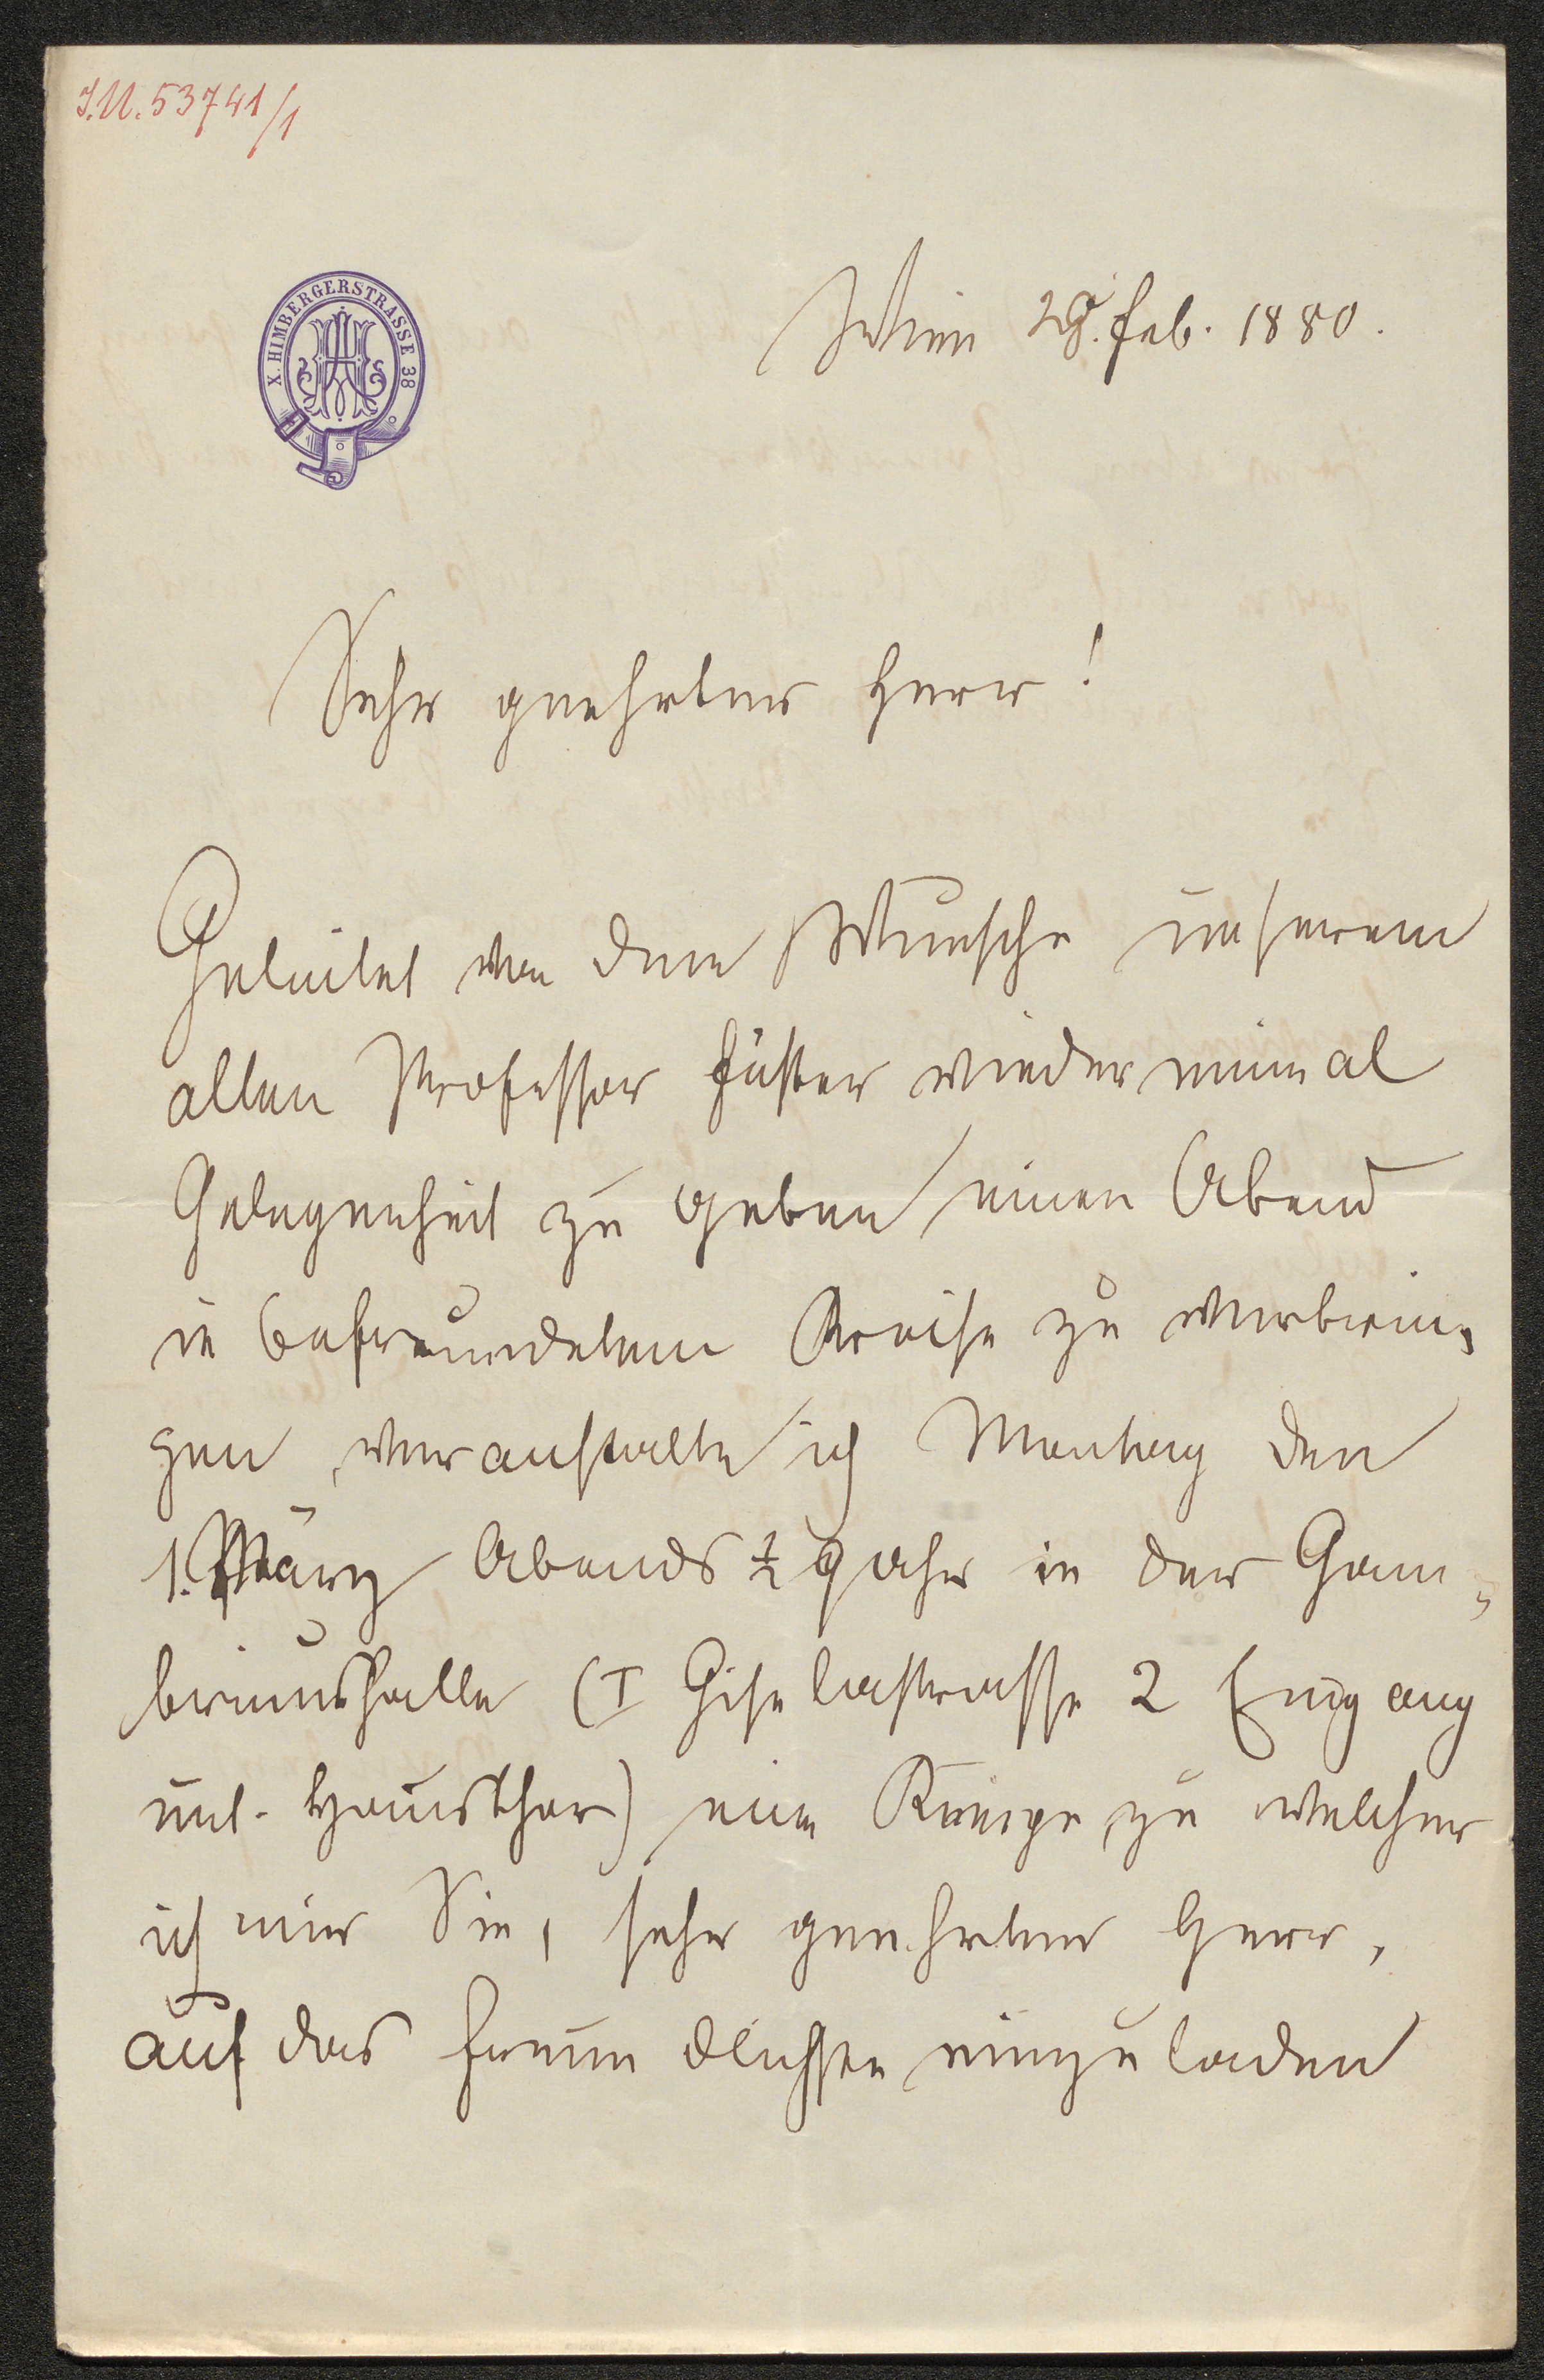 I.N. 53741/1
X. HIMBERGERSTRASSE 38
Wien 28. Feb. 1880.
Sehr geehrter Herr!
Geleitet von dem Wunsche unserem
alten Professor Füster wieder einmal
Gelegenheit zu geben einen Abend
in befreundetem Kreise zu verbrin-
gen, veranstalte ich Montag den
1. März Abends ½ 9 Uhr in der Gam-
brinushalle (I Giselastrasse 2 Eingang
unt. Hausthor) eine Kneipe, zu welcher
ich mir Sie, sehr geehrter Herr,
auf das freundlichste einzuladen